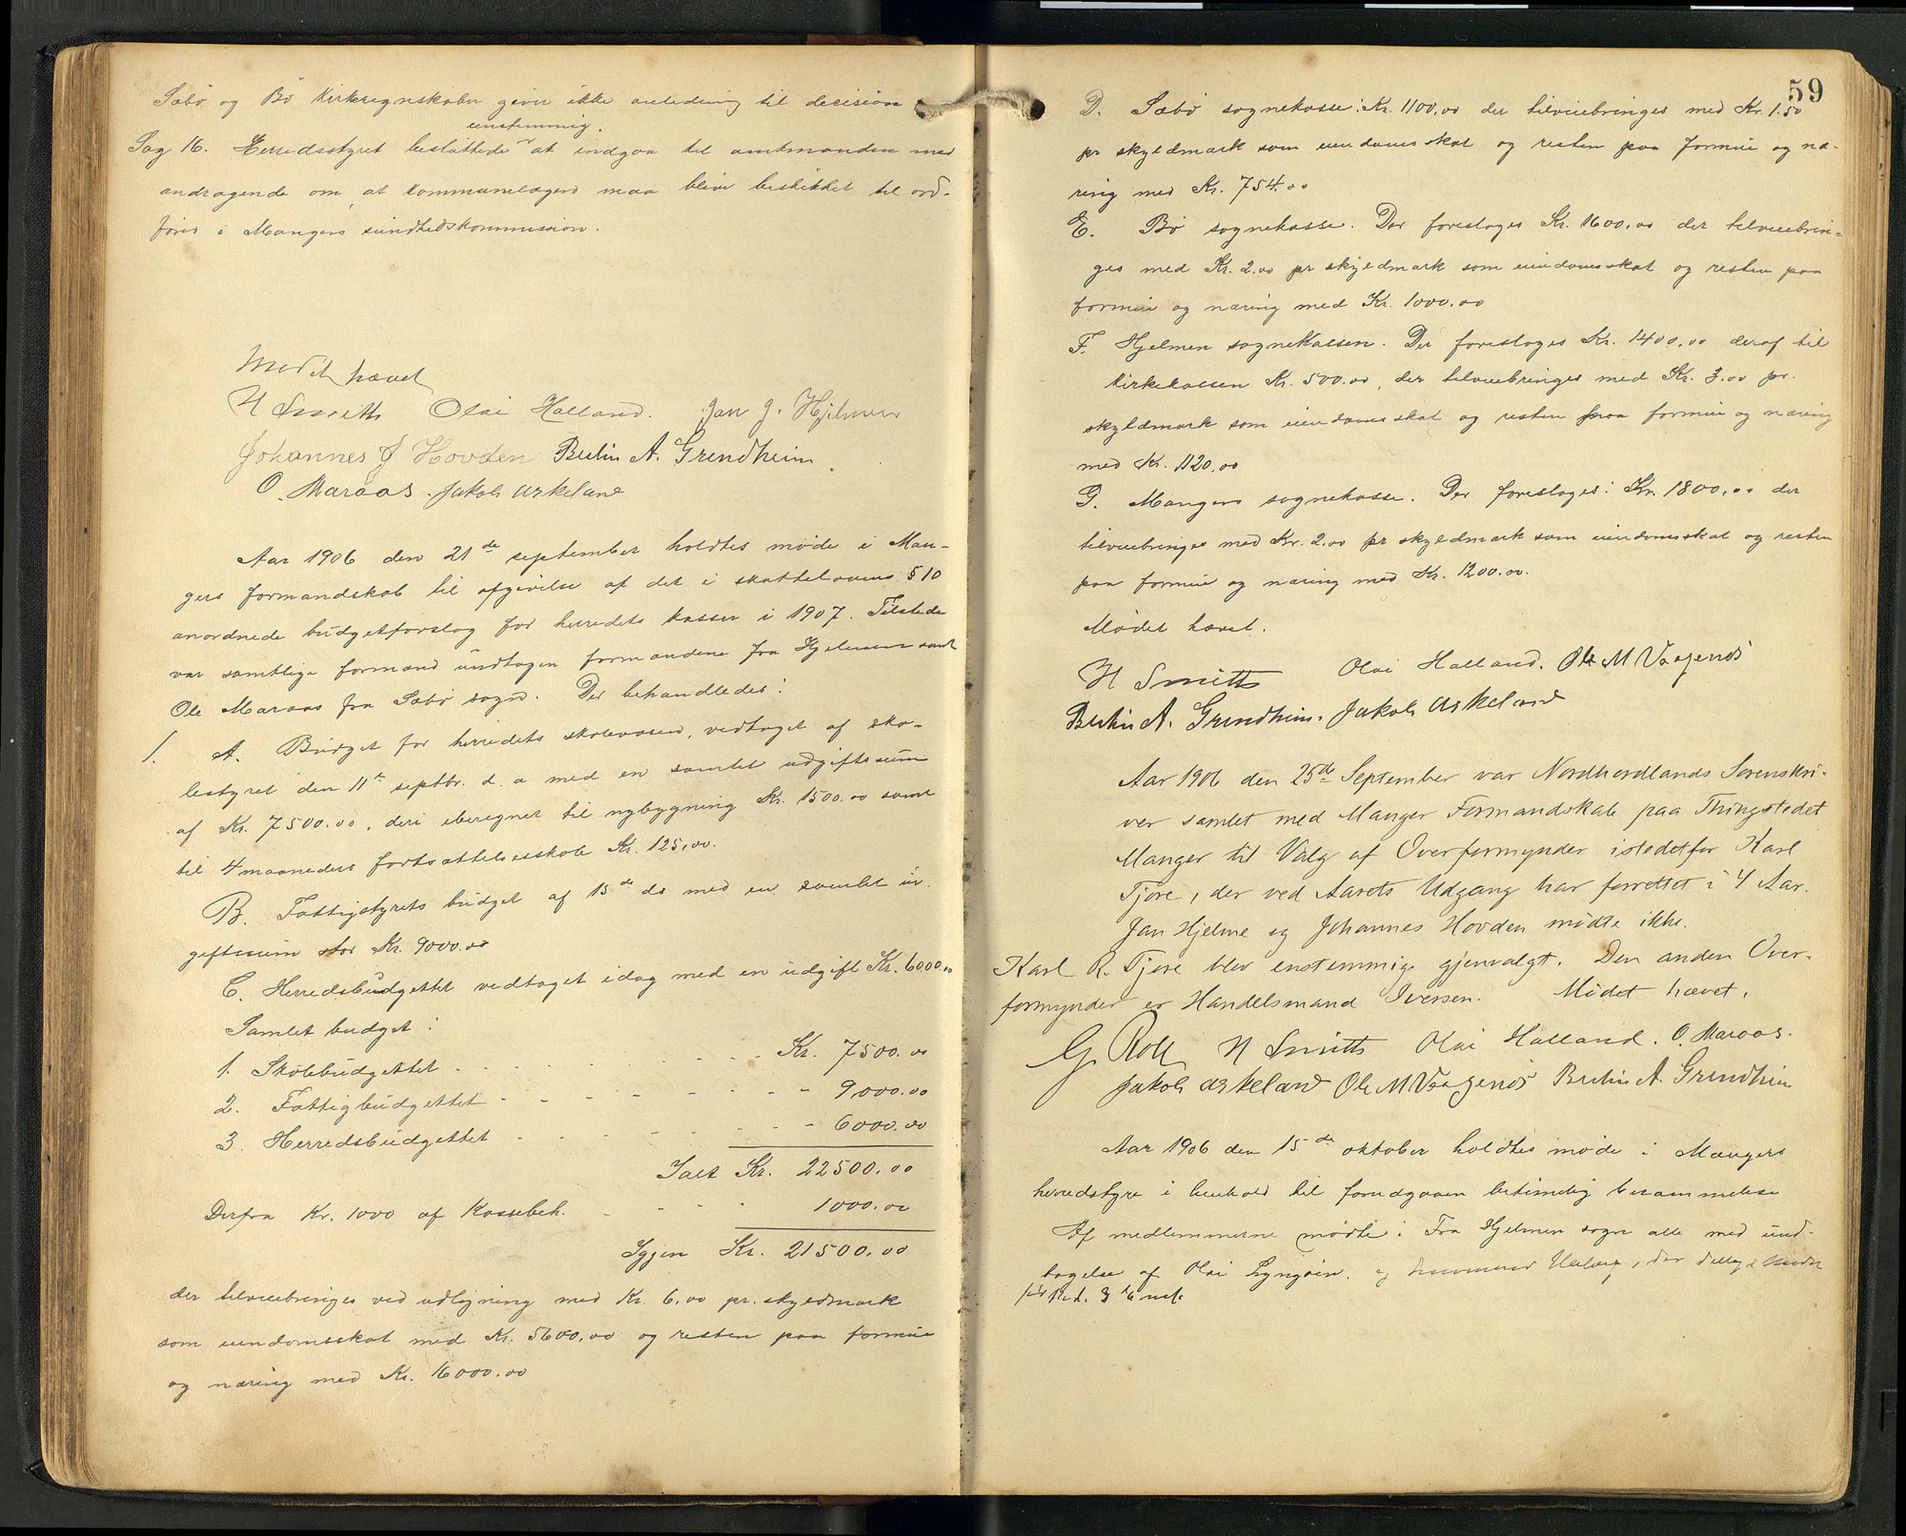 Sæbø og Bø Kirkeregnskaber giver ikke anledning til decision
enstemmig.
Sag 16. Herredsstyret besluttede at indgaa til amtmanden med
andragende om, at kommunelægen maa blive beskikket til ord-
fører i Mangers sundhedskommission.
Mødet hævet
H Smitth Olai Halland. Jan J. Hjelmen
Johannes J Hovden Bertin A. Grendheim.
O. Maraas. Jakob Askeland
Aar 1906 den 21de september holdtes møde i Man-
gers formandskab til afgivelse af det i skattelovens § 10
anordnede budgetforslag for herredets kasser i 1907. Tilstede
var samtlige formænd undtagen formændene fra Hjelmen samt
Ole Maraas fra Sæbø sogn. Der behandledes:
1. A. Budget for herredets skolevæsen, vedtaget af sko-
lestyret den 11te septbr. d. a med en samlet udgiftssum
af Kr. 7500.00, deri iberegnet til nybygning Kr. 1500.00 samt
til 4 maaneders fortsættelsesskole Kr. 125,00.
B. Fattigstyrets budget af 15de ds med en samlet ud-
giftssum stor Kr. 9000.00
C. Herredsbudgettet vedtaget idag med en udgift Kr. 6000.00
Samlet budget:
1. Skolebudgettet - - - - Kr. 7500.00
2. Fattigbudgettet - - - - - - 9000.00
3. Herredsbudgettet - - - - - - 6000.00
Ialt Kr. 22500.00
Derfra Kr. 1000 af Kassebeh. - - - 1000.00
Igjen Kr. 21500.00
der tilveiebringes ved udligning med Kr. 6,00 pr. skyldmark
som eiendomsskat med Kr. 5600,00 og resten paa formue
og næring med Kr. 16000.00
59
D. Sæbø sognekasse: Kr. 1100,00 der tilveiebringes med Kr. 1.50
pr skyldmark som eiendomsskat og resten paa formue og næ-
ring med Kr. 754.00
E. Bø sognekasse. Der foreslages Kr. 1600,00 der tilveiebrin-
ges med Kr. 2.00 pr skyldmark som eiendomsskat og resten paa
formue og næring med Kr. 1000.00
F. Hjelmen sognekassen. Der foreslages Kr. 1400,00 deraf til
kirkekassen Kr. 500.00, der tilveiebringes med Kr. 3.00 pr.
skyldmark som eiendomsskat og resten paa formue og næring
med Kr. 1120.00
G. Mangers sognekasse. Der foreslages: Kr. 1800,00 der
tilveiebringes med Kr. 2.00 pr skyldmark som eiendomsskat og resten
paa formue og næring med Kr. 1200.00.
Mødet hævet.
H Smitth Olai Halland. Ole M Vaagenes
Bertin A. Grendheim. Jakob Askeland
Aar 1906 den 25de September var Nordhordlands Sorenskri-
ver samlet med Manger Formandskab paa Thingstedet
Manger til Valg af Overformynder istedetfor Karl
Tjore, der ved Aarets Udgang har forrettet i 4 Aar.
Jan Hjelme og Johannes Hovden mødte ikke.
Karl R. Tjore blev enstemmig gjenvalgt. Den anden Over-
formynder er Handelsmand Iversen. Mødet hævet.
G. Roll H Smitth Olai Halland. O. Maraas.
Jakob Askeland Ole M Vaagenes Bertin A Grendheim
Aar 1906 den 15de oktober holdtes møde i Mangers
herredstyre i henhold til forudgaaen betimelig bersammelse
Af medlemmerne mødte: Fra Hjelmen sogn alle med und-
tagelse af Olai Lyngøen. og